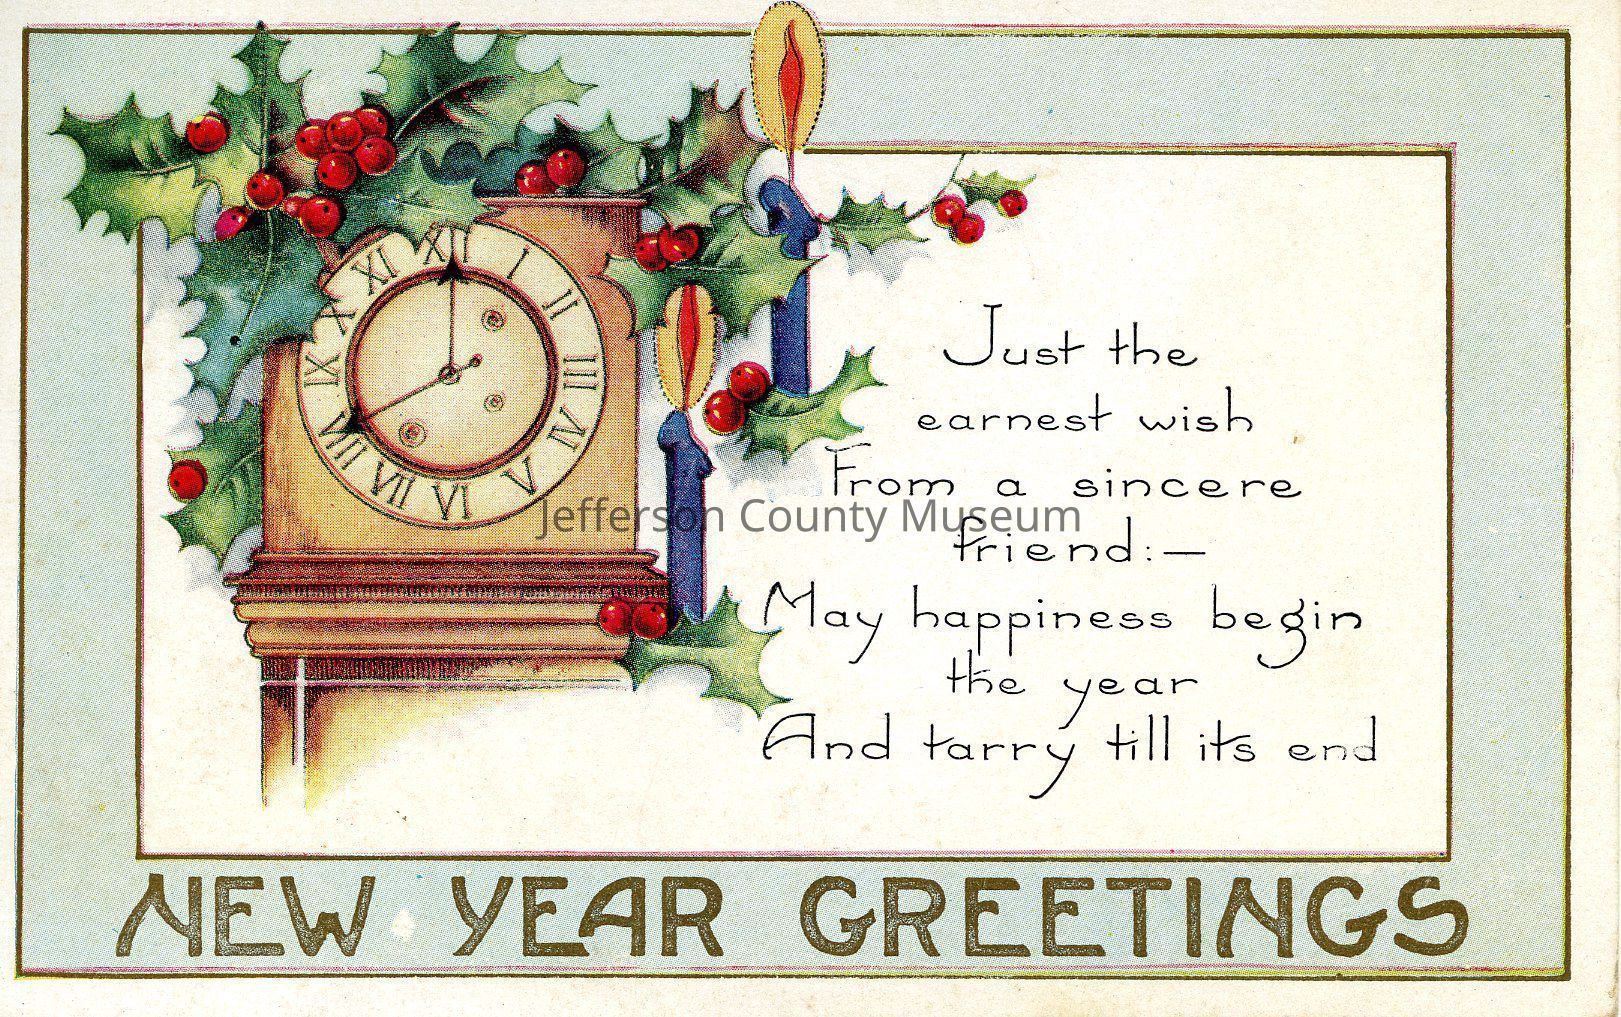 XII
I
II
III
IV
V
VI
VII
VIII
IX
X
XI
Just the
earnest wish
From a sincere
friend:—
May happiness begin
the year
And tarry till its end
Jefferson County Museum
NEW YEAR GREETINGS